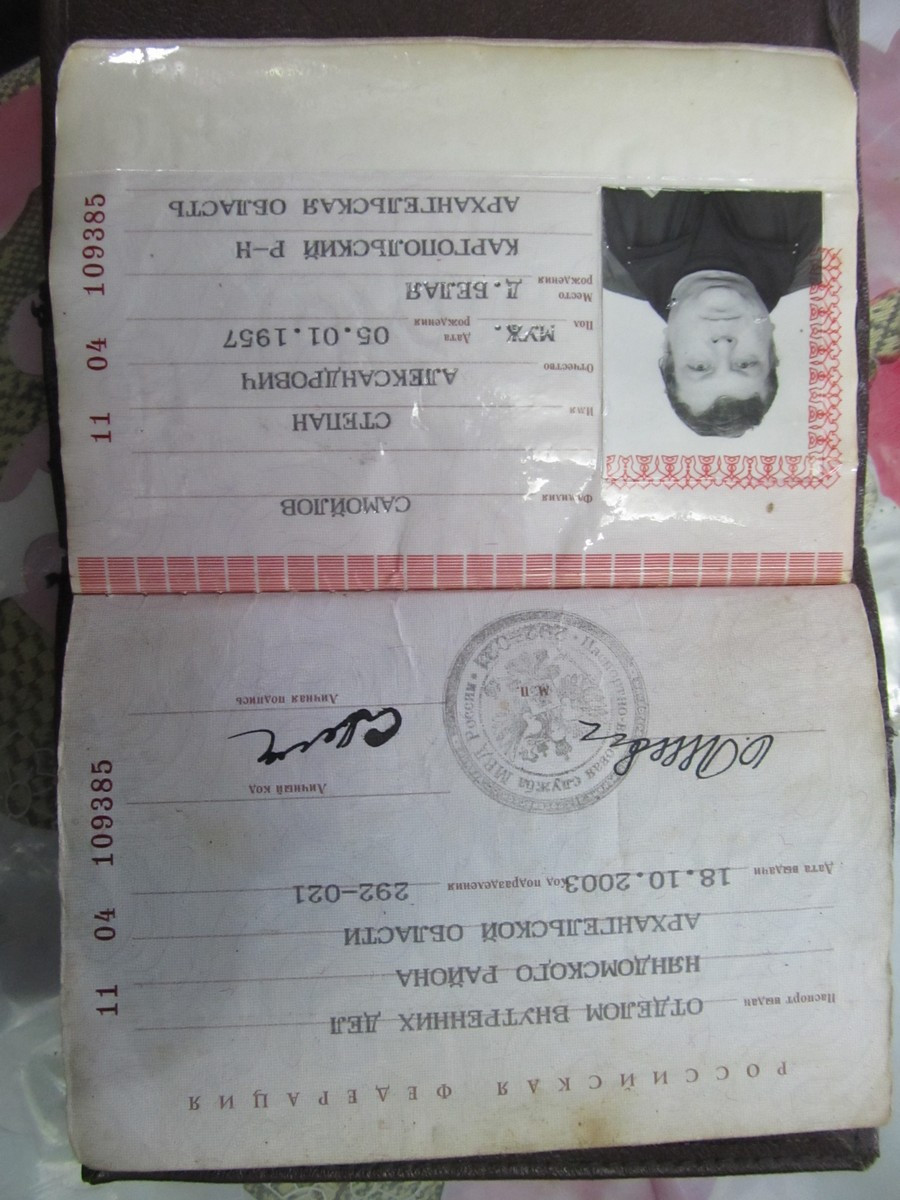 РОССИЙСКАЯ ФЕДЕРАЦИЯ
Паспорт выдан ОТДЕЛОМ ВНУТРЕННИХ ДЕЛ
НЯНДОМСКОГО РАЙОНА
АРХАНГЕЛЬСКОЙ ОБЛАСТИ
Дата выдачи 18.10.2003 Код подразделения 292-021
Личный код
Личная подпись
М.П.
Паспортно-визовая служба МВД России
292-021
11 04 109385
Фамилия САМОЙЛОВ
Имя СТЕПАН
Отчество АЛЕКСАНДРОВИЧ
Пол МУЖ. Дата рождения 05.01.1957
Место рождения Д.БЕЛАЯ
КАРГОПОЛЬСКИЙ Р-Н
АРХАНГЕЛЬСКАЯ ОБЛАСТЬ
11 04 109385